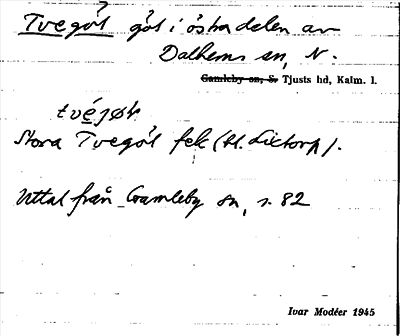 Tvegöl göl i östra delen av
Dalhems sn, N.
Gamleby sn, S. Tjusts hd, Kalm. l.
tvéjøl.
Stora Tvegöl fek (bl. Lixtorp).
Uttal från Gamleby sn, s. 82
Ivar Modéer 1945